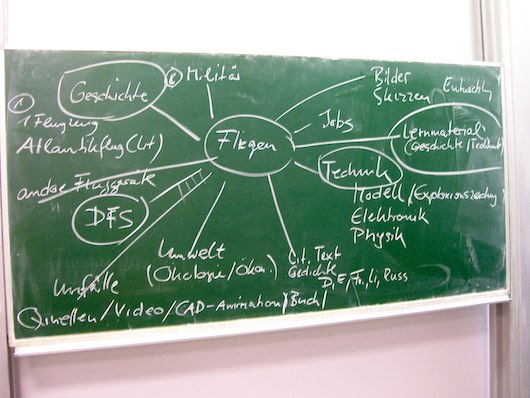 Geschichte
⑥ Militär
Bilder
Skizzen
①
1 Flugzeug
Atlantikflug (Lit)
Jobs
Lernmaterial
(Geschichte/Technik)
Fliegen
Technik
andere Fluggeräte
Modell/Explosionszeichnung
Elektronik
Physik
DFS
Umwelt
(Ökologie/Ökon.)
Lit. Text
Gedichte
D, E, Fr, Li, Russ
Unfälle
Quellen/Video/CAD-Animation/Buch/